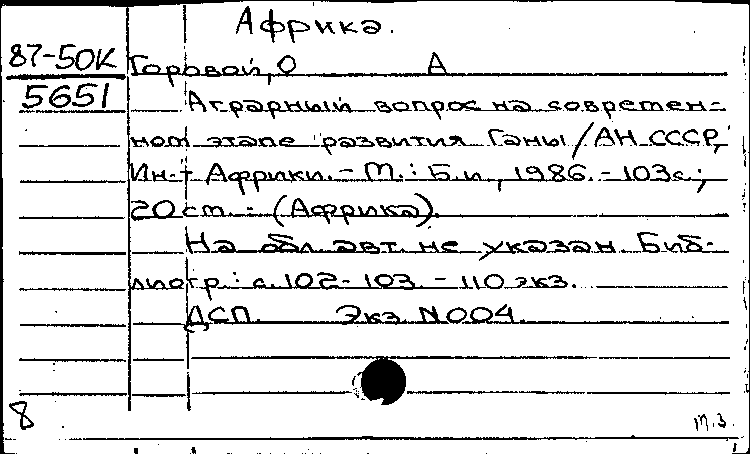 Африка.
87-50К Горовой, О А
5651 Аграрный вопрос на современ-
ном этапе развития Ганы / АН СССР,
Ин-т Африки. - М.: Б.и., 1986. - 103с.;
20 cm. - (Африка).
На обл. авт. не указан. Биб-
лиогр.: с. 102-103. - 110 экз.
ДСП. Экз. N004.
8 м.з.